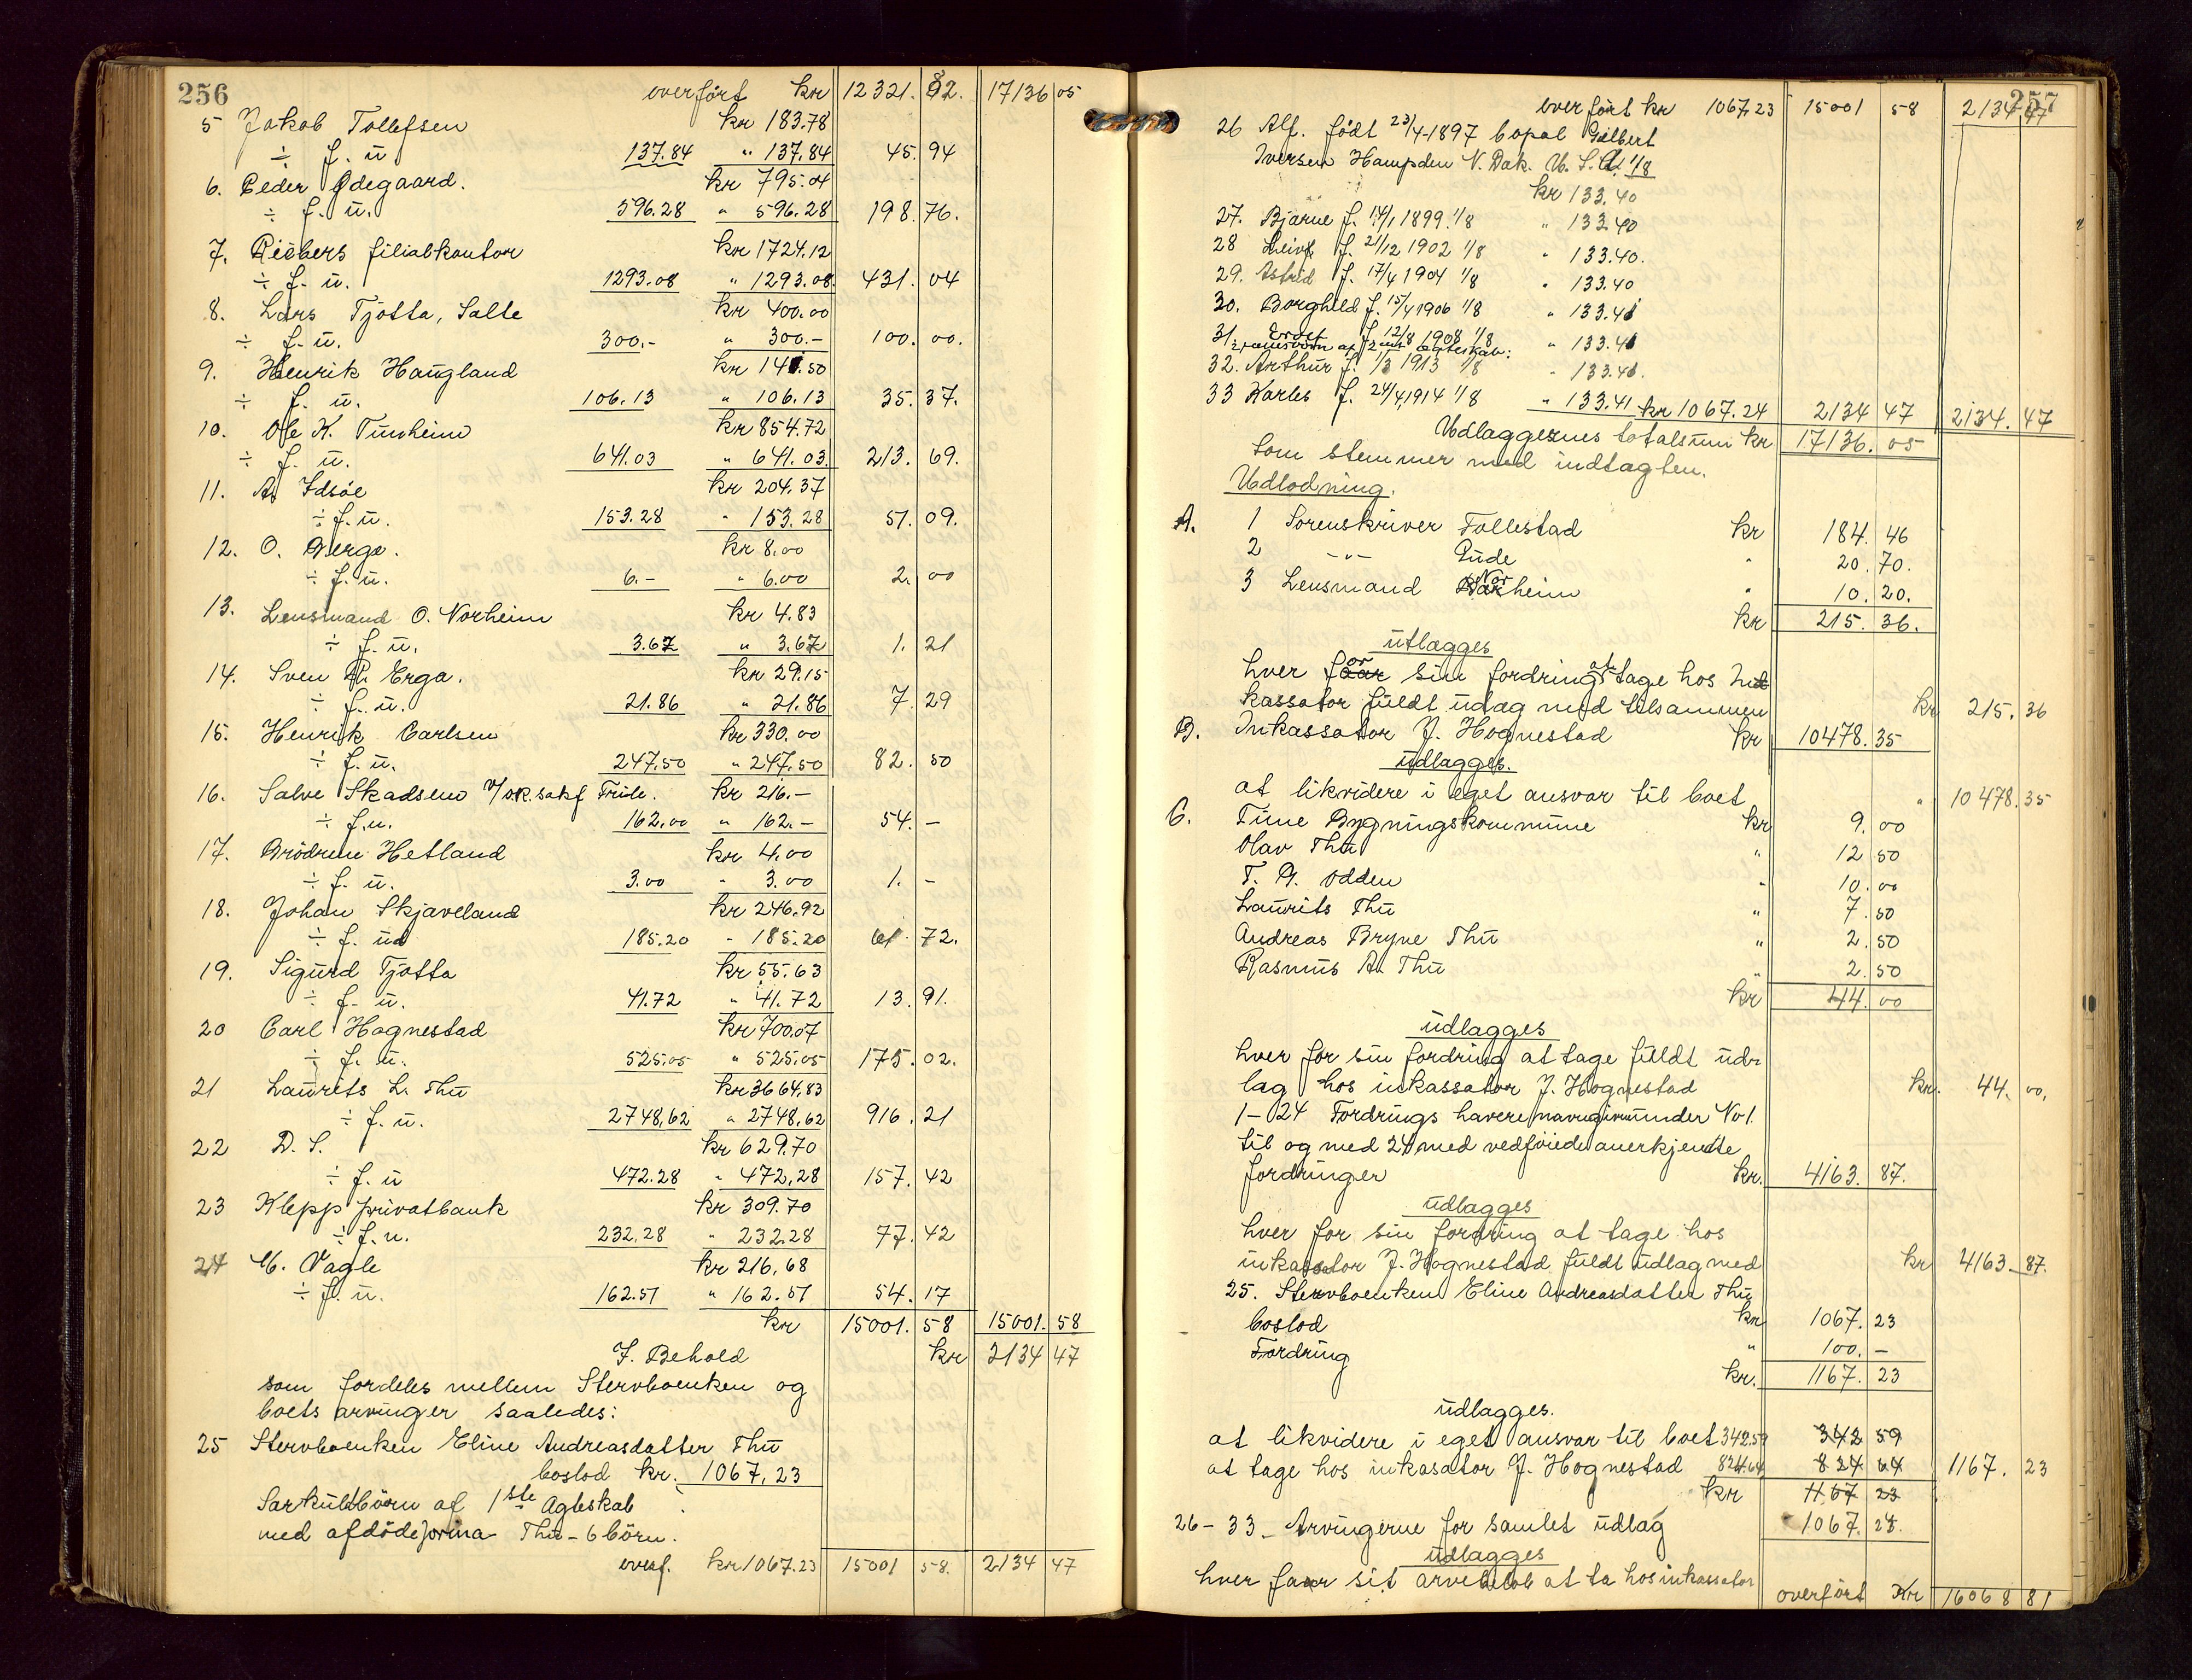 256
overført kr 12321. 82. 17136 05
5 Jakob Tollefsen kr 183.78
÷ f. u. 137.84 " 137.84 45. 94
6. Peder Ødegaard. kr 795.04
÷ f. u. 596.28 " 596.28 198. 76.
7. Riebers filialkontor kr 1724.12
÷ f. u. 1293.08 " 1293.08. 431. 04
8. Lars Tjötta, Salte kr 400.00
÷ f. u. 300.- " 300.- 100. 00.
9. Henrik Haugland kr 141.50
÷ f. u. 106.13 " 106.13 35. 37.
10. Ole K. Tunheim kr 854.72
÷ f. u. 641.03 " 641.03. 213. 69.
11. A. Idsöe kr 204.37
÷ f. u. 153.28 " 153.28 51. 09.
12. O. Bergø. kr 8,00
÷ f. u. 6.- " 6.00 2. 00
13. Lensmand O. Norheim kr 4.83
÷ f. u. 3.67 " 3.67 1. 21
14. Sven R. Erga. kr 29.15
÷ f. u. 21.86 " 21.86 7. 29
15. Henrik Carlsen kr 330.00
÷ f. u. 247.50 " 247.50 82. 50
16. Salve Skadsem v/o.r.sakf Friile. kr 216.-
÷ f.u. 162.00 " 162.- 54. -
17. Brödrene Hetland kr 4.00
÷ f. u. 3.00 " 3.00 1. -
18. Johan Skjæveland kr 246.92
÷ f. ud 185.20 " 185.20 61. 72.
19. Sigurd Tjøtta kr 55.63
÷ f. u. 41.72 " 41.72 13. 91.
20 Carl Hognestad kr 700.07
÷ f. u. 525.05 " 525.05 175. 02.
21 Laurits L. Thu kr 3664,83
÷ f. u. 2748,62 " 2748,62 916. 21
22 D. S. kr 629.70
÷ f. u 472.28 " 472,28 157. 42
23 Klepp privatbank kr 309.70
÷ f. u. 232.28 " 232.28 77. 42
24 M. Vagle kr 216,68
÷ f. u. 162.51 " 162.51 54. 17
kr 15001. 58 15001. 58
I. Behold kr 2134 47
som fordeles mellem Stervboenken og
boets arvinger saaledes:
25 Stervboenken Eline Andreasdatter Thu
boslod kr. 1067,23
Særkuldbörn af 1ste Ægteskab
med afdöde Jorina Thu - 6 börn.
overf. kr 1067.23 15001 58. 2134 47
257
overført kr 1067,23 15001 58 2134 47
26 Alf. født 23/4-1897 bopal Gilbert
Iversen Hampden N. Dak. U. S. A. 1/8
kr 133.40
27. Bjarne f. 14/1 1899 1/8 " 133.40
28 Leif f. 21/12 1902 1/8 " 133.40.
29. Astrid f. 17/4 1904 1/8 " 133.40
30. Borghild f. 15/4 1906 1/8 " 133.41
31. Ernst f. 12/8 1908 1/8 " 133.41
ægteskab:
32. Arthur f. 1/3 1913 1/8 " 133.41.
33 Karles f. 24/4 1914 1/8 " 133.41 kr 1067.24 2134 47 2134. 47
Udlæggernes totalsum kr 17136. 05
som stemmer med indtægten.
Udlodning.
A. 1 Sorenskriver Tollestad kr 184. 46
2 -"- Gude " 20. 70.
3 Lensmand Norheim " 10. 20.
kr 215. 36.
utlægges
hver for sin fordring at tage hos In
kassator fuldt udlag med tilsammen kr 215. 36
B. Inkassator J. Hognestad kr 10478. 35
udlægges.
at likvidere i eget ansvar til boet " 10478. 35
C. Time Bygningskommune kr 9. 00
Olav Thu " 12 50
T. G. Odden " 10. 00
Laurits Thu " 7. 50
Andreas Bryne Thu " 2. 50
Rasmus A. Thu " 2. 50
kr 44. 00
udlægges
hver for sin fordring at tage fuldt ud-
lag hos inkassator J. Hognestad kr. 44. 00,
1-24 Fordrings havere navngivne under No 1.
til og med 24 med vedföiede anerkjendte
fordringer kr. 4163. 87.
udlægges
hver for sin fordring at tage hos
inkassator J. Hognestad fuldt udlag med kr 4163. 87.
25. Stervboenken Eline Andreasdatter Thu
boslod kr 1067. 23
Fordring " 100. -
kr. 1167. 23
udlægges.
at likvidere i eget ansvar til boet 342.59 342 59
at tage hos inkasator J. Hognestad 824.64 824 64 1167. 23
kr 1167 23
26-33 - Arvingerne for samlet udlæg 1067. 24.
udlægges
hver faar sit arvebelöb at ta hos inkassator
overført kr 16068 81